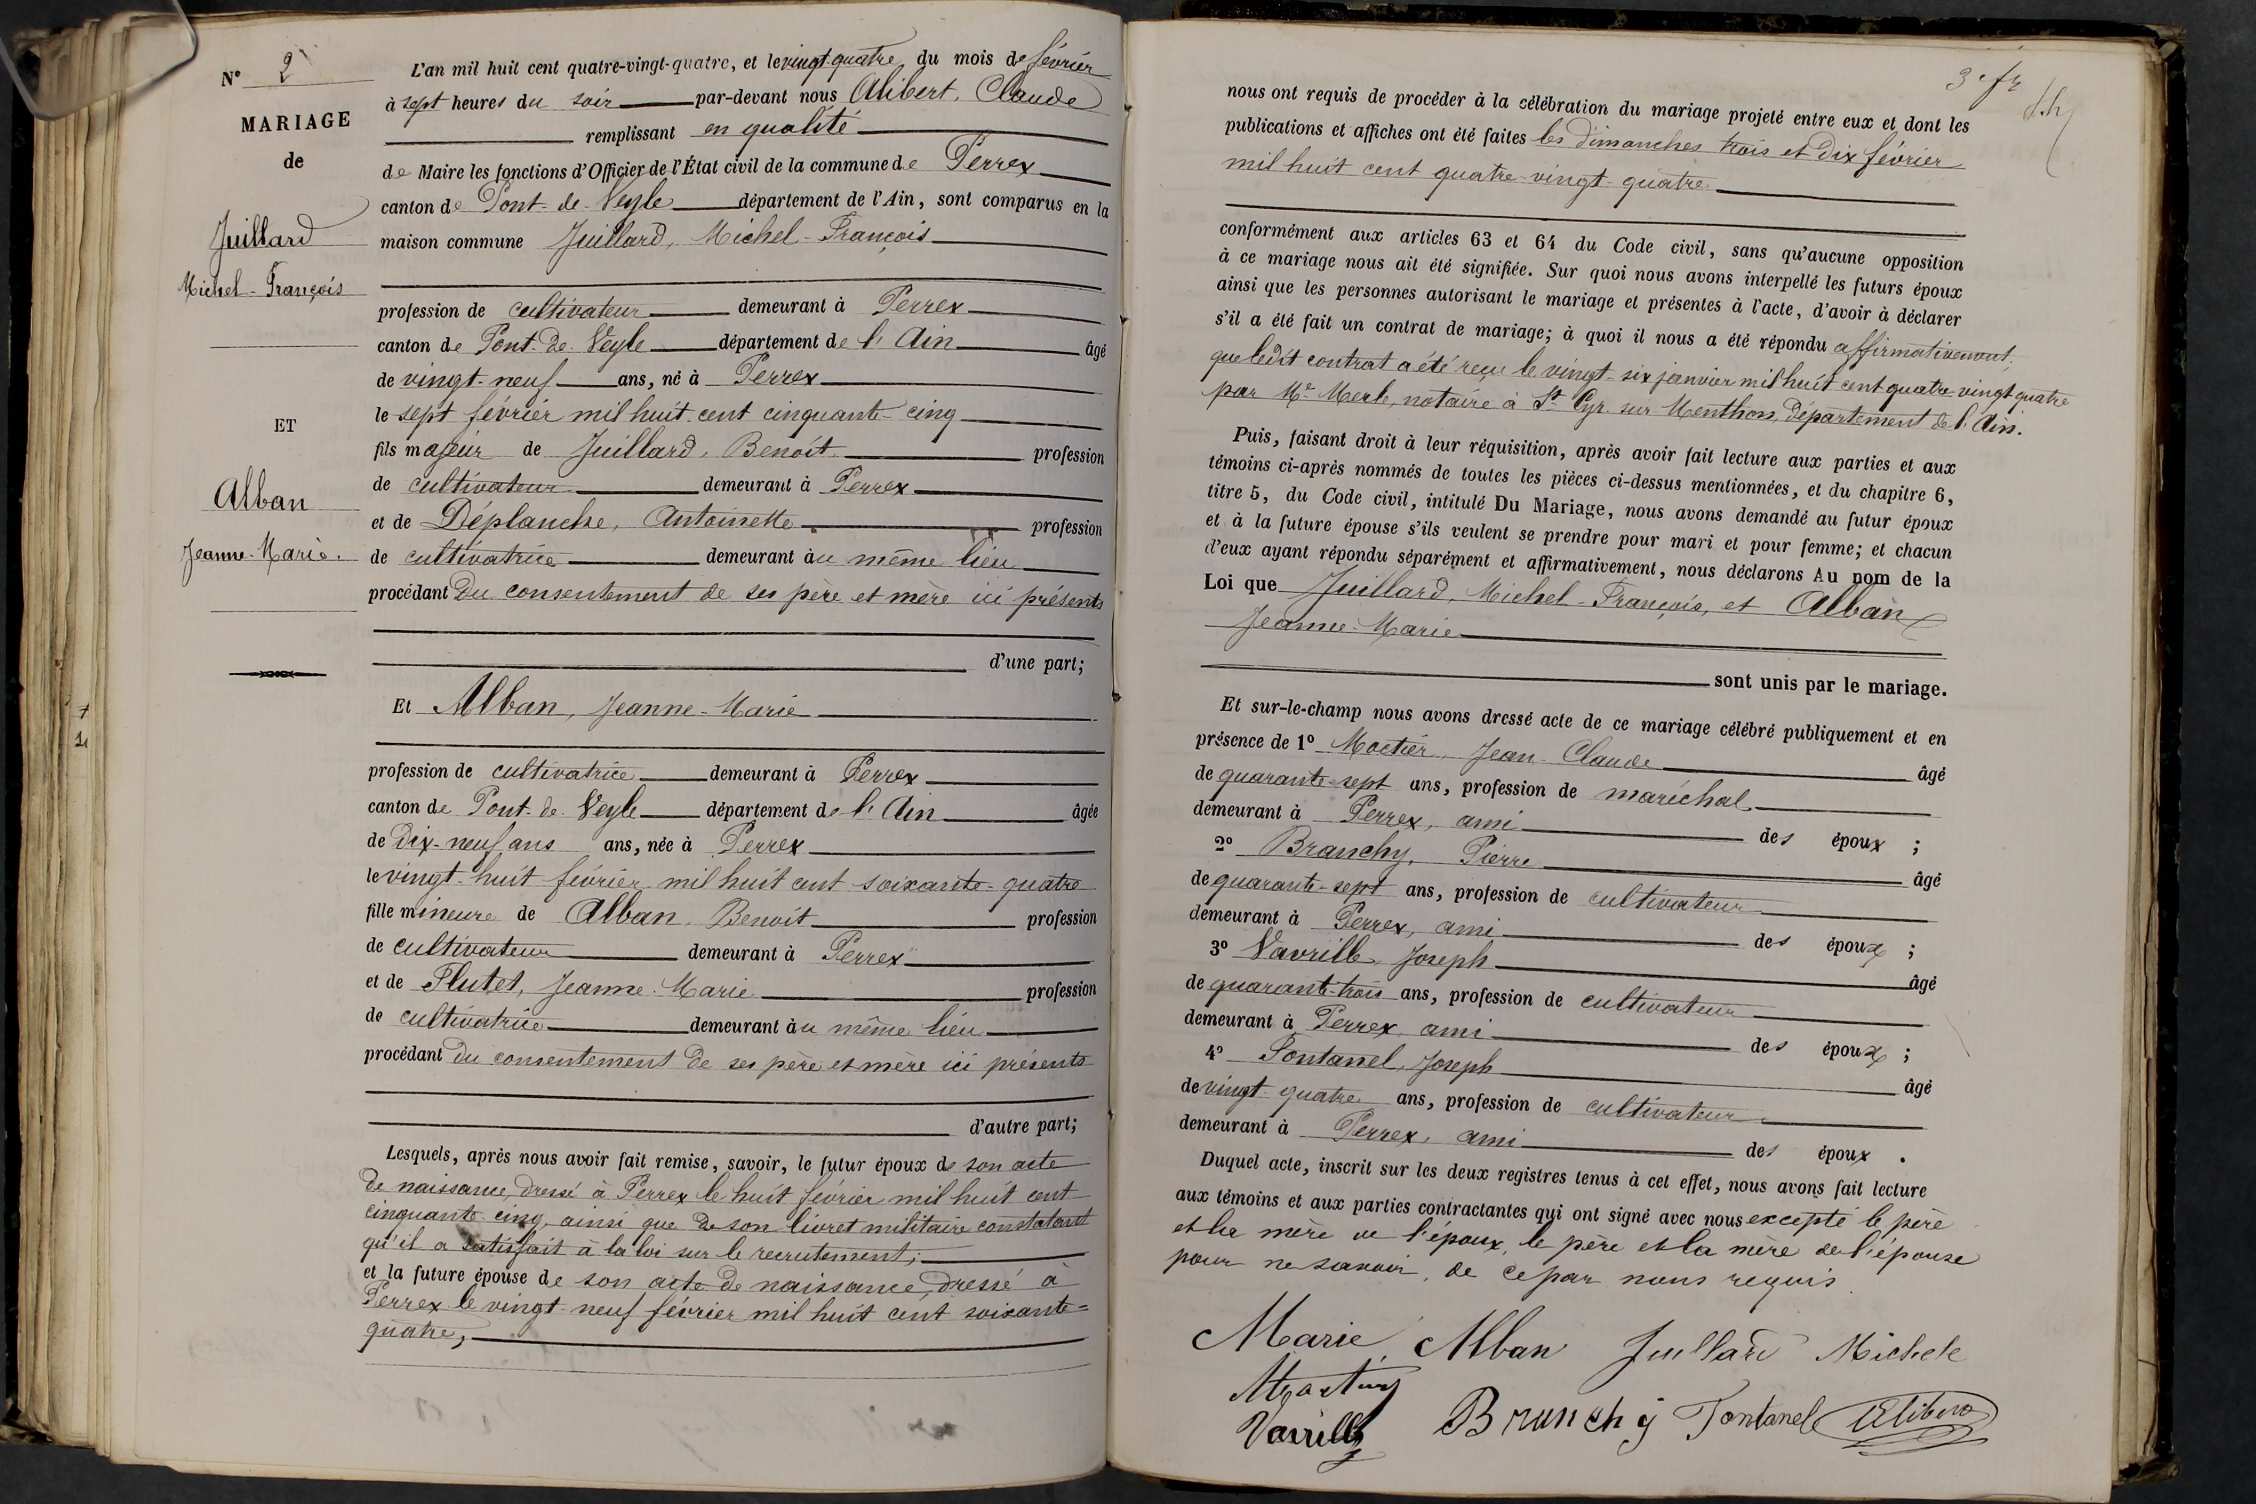 N° 2
MARIAGE
de
Juillard
Michel-François
ET
Alban
Jeanne-Marie.
L'an mil huit cent quatre-vingt-quatre, et le vingt-quatre du mois de février
à sept heures du soir par-devant nous Alibert, Claude
remplissant en qualité
de Maire les fonctions d'Officier de l'État civil de la commune de Perrex
canton de Pont-de-Veyle département de l'Ain, sont comparus en la
maison commune Juillard, Michel-François
profession de cultivateur demeurant à Perrex
canton de Pont-de-Veyle département de l'Ain âgé
de vingt-neuf ans, né à Perrex
le sept février mil huit cent cinquante-cinq
fils majeur de Juillard, Benoît profession
de cultivateur demeurant à Perrex
et de Déplanche, Antoinette profession
de cultivatrice demeurant au même lieu
procédant du consentement de ses père et mère ici présents
d'une part;
Et Alban, Jeanne-Marie
profession de cultivatrice demeurant à Perrex
canton de Pont-de-Veyle département de l'Ain âgée
de dix-neuf ans ans, née à Perrex
le vingt-huit février mil huit cent soixante-quatre
fille mineure de Alban Benoît profession
de cultivateur demeurant à Perrex
et de Flutet, Jeanne-Marie profession
de cultivatrice demeurant au même lieu
procédant du consentement de ses père et mère ici présents
d'autre part;
Lesquels, après nous avoir fait remise, savoir, le futur époux de son acte
de naissance, dressé à Perrex le huit février mil huit cent
cinquante-cinq, ainsi que de son livret militaire constatant
qu'il a satisfait à la loi sur le recrutement;
et la future épouse de son acte de naissance, dressé à
Perrex le vingt-neuf février mil huit cent soixante-
quatre,
3e fr
nous ont requis de procéder à la célébration du mariage projeté entre eux et dont les
publications et affiches ont été faites les dimanches trois et dix février
mil huit cent quatre-vingt-quatre
conformément aux articles 63 et 64 du Code civil, sans qu'aucune opposition
à ce mariage nous ait été signifiée. Sur quoi nous avons interpellé les futurs époux
ainsi que les personnes autorisant le mariage et présentes à l'acte, d'avoir à déclarer
s'il a été fait un contrat de mariage; à quoi il nous a été répondu affirmativement,
que ledit contrat a été reçu le vingt-six janvier mil huit cent quatre-vingt-quatre
par Me Merle, notaire à St Cyr-sur-Menthon, département de l'Ain.
Puis, faisant droit à leur réquisition, après avoir fait lecture aux parties et aux
témoins ci-après nommés de toutes les pièces ci-dessus mentionnées, et du chapitre 6,
titre 5, du Code civil, intitulé Du Mariage, nous avons demandé au futur époux
et à la future épouse s'ils veulent se prendre pour mari et pour femme; et chacun
d'eux ayant répondu séparément et affirmativement, nous déclarons Au nom de la
Loi que Juillard, Michel-François, et Alban
Jeanne-Marie
sont unis par le mariage.
Et sur-le-champ nous avons dressé acte de ce mariage célébré publiquement et en
présence de 1° Moetier, Jean-Claude âgé
de quarante-sept ans, profession de maréchal
demeurant à Perrex, ami des époux ;
2° Branchy, Pierre âgé
de quarante-sept ans, profession de cultivateur
demeurant à Perrex, ami des époux ;
3° Vavrille, Joseph âgé
de quarante-trois ans, profession de cultivateur
demeurant à Perrex, ami des époux ;
4° Fontanel, Joseph âgé
de vingt-quatre ans, profession de cultivateur
demeurant à Perrex, ami des époux .
Duquel acte, inscrit sur les deux registres tenus à cet effet, nous avons fait lecture
aux témoins et aux parties contractantes qui ont signé avec nous excepté le père
et la mère de l'époux, le père et la mère de l'épouse
pour ne savoir, de ce par nous requis.
Marie Alban Juillard Michele
Vavrille Brunchy Fontanel Alibert